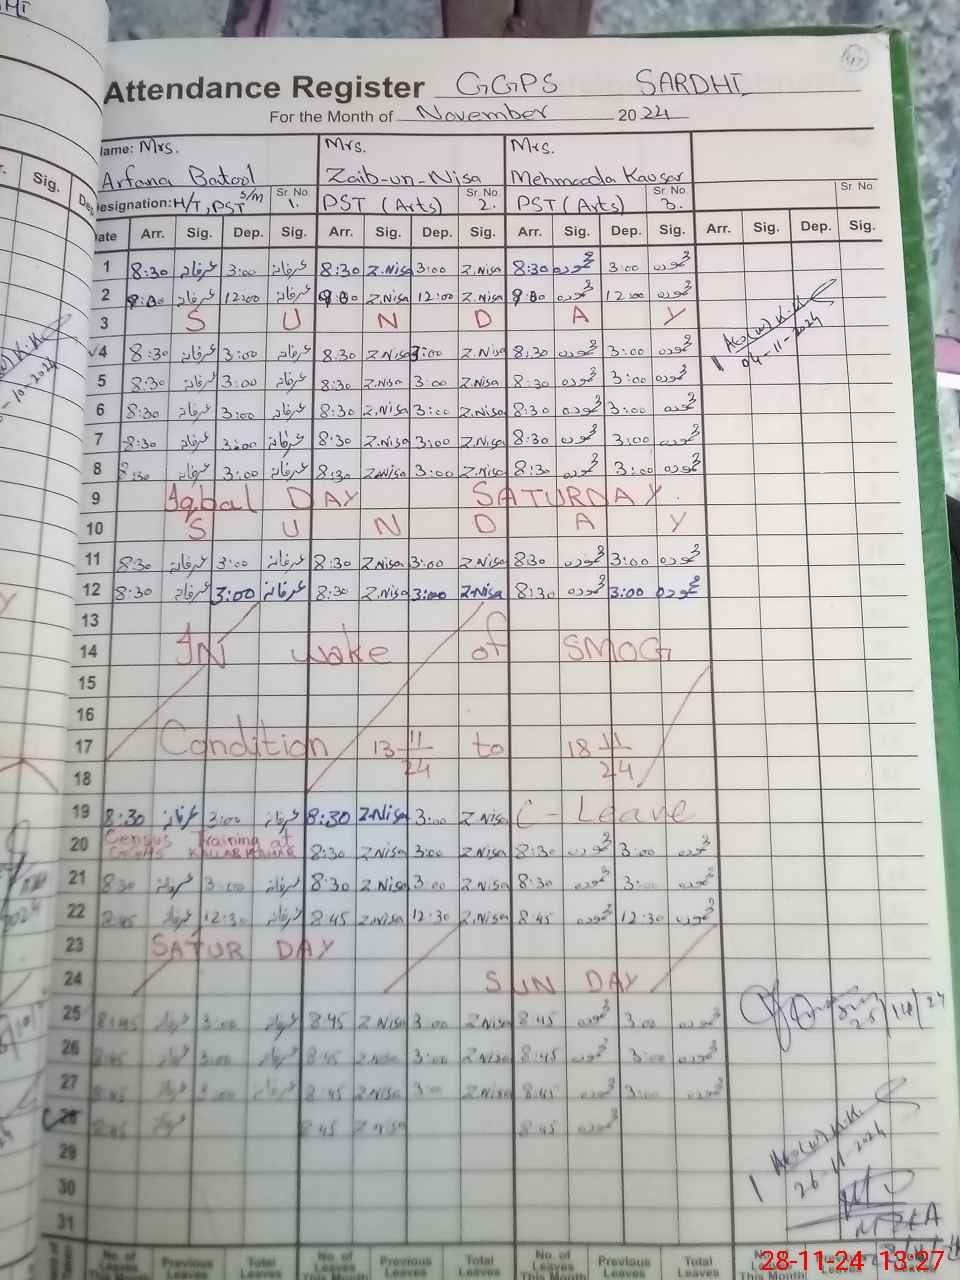 Attendance Register GGPS SARDHI
For the Month of November 2024
Name: Mrs. Mrs. Mrs.
Arfana Batool Zaib-un-Nisa Mehmooda Kausar
Designation: H/T, PST S/M Sr. No. 1. PST (Arts) Sr. No. 2. PST (Arts) Sr. No. 3. Sr. No.
Date Arr. Sig. Dep. Sig. Arr. Sig. Dep. Sig. Arr. Sig. Dep. Sig. Arr. Sig. Dep. Sig.
1 8:30 عرفانہ 3:00 عرفانہ 8:30 Z.Nisa 3:00 Z.Nisa 8:30 محمودہ 3:00 محمودہ
2 عرفانہ 12:00 عرفانہ Z.Nisa 12:00 Z.Nisa محمودہ 12:00 محمودہ
3 S U N D A Y
4 8:30 عرفانہ 3:00 عرفانہ 8:30 Z.Nisa 3:00 Z.Nisa 8:30 محمودہ 3:00 محمودہ
5 8:30 عرفانہ 3:00 عرفانہ 8:30 Z.Nisa 3:00 Z.Nisa 8:30 محمودہ 3:00 محمودہ
6 8:30 عرفانہ 3:00 عرفانہ 8:30 Z.Nisa 3:00 Z.Nisa 8:30 محمودہ 3:00 محمودہ
7 8:30 عرفانہ 3:00 عرفانہ 8:30 Z.Nisa 3:00 Z.Nisa 8:30 محمودہ 3:00 محمودہ
8 8:30 عرفانہ 3:00 عرفانہ 8:30 Z.Nisa 3:00 Z.Nisa 8:30 محمودہ 3:00 محمودہ
9 Iqbal DAY SATURDAY.
10 S U N D A Y
11 8:30 عرفانہ 3:00 عرفانہ 8:30 Z.Nisa 3:00 Z.Nisa 8:30 محمودہ 3:00 محمودہ
12 8:30 عرفانہ 3:00 عرفانہ 8:30 Z.Nisa 3:00 Z.Nisa 8:30 محمودہ 3:00 محمودہ
13
14 IN wake of SMOG
15
16
17 Condition 13 11/24 to 18 11/24
18
19 8:30 عرفانہ 3:00 عرفانہ 8:30 Z.Nisa 3:00 Z.Nisa C-Leave
20 Census Training at 8:30 Z.Nisa 3:00 Z.Nisa 8:30 محمودہ 3:00 محمودہ
21 8:30 عرفانہ 3:00 عرفانہ 8:30 Z.Nisa 3:00 Z.Nisa 8:30 محمودہ 3:00 محمودہ
22 8:45 عرفانہ 12:30 عرفانہ 8:45 Z.Nisa 12:30 Z.Nisa 8:45 محمودہ 12:30 محمودہ
23 SATUR DAY
24 SUN DAY
25 8:45 عرفانہ 3:00 عرفانہ 8:45 Z.Nisa 3:00 Z.Nisa 8:45 محمودہ 3:00 محمودہ
26 8:45 عرفانہ 3:00 عرفانہ 8:45 Z.Nisa 3:00 Z.Nisa 8:45 محمودہ 3:00 محمودہ
27 8:45 عرفانہ 3:00 عرفانہ 8:45 Z.Nisa 3:00 Z.Nisa 8:45 محمودہ 3:00 محمودہ
28 8:45 عرفانہ 8:45 Z.Nisa 8:45 محمودہ
29
30
31
04-11-2024
26-11-2024
No. of Leaves This Month Previous Leaves Total Leaves No. of Leaves This Month Previous Leaves Total Leaves No. of Leaves This Month Previous Leaves Total Leaves
28-11-24 13:27